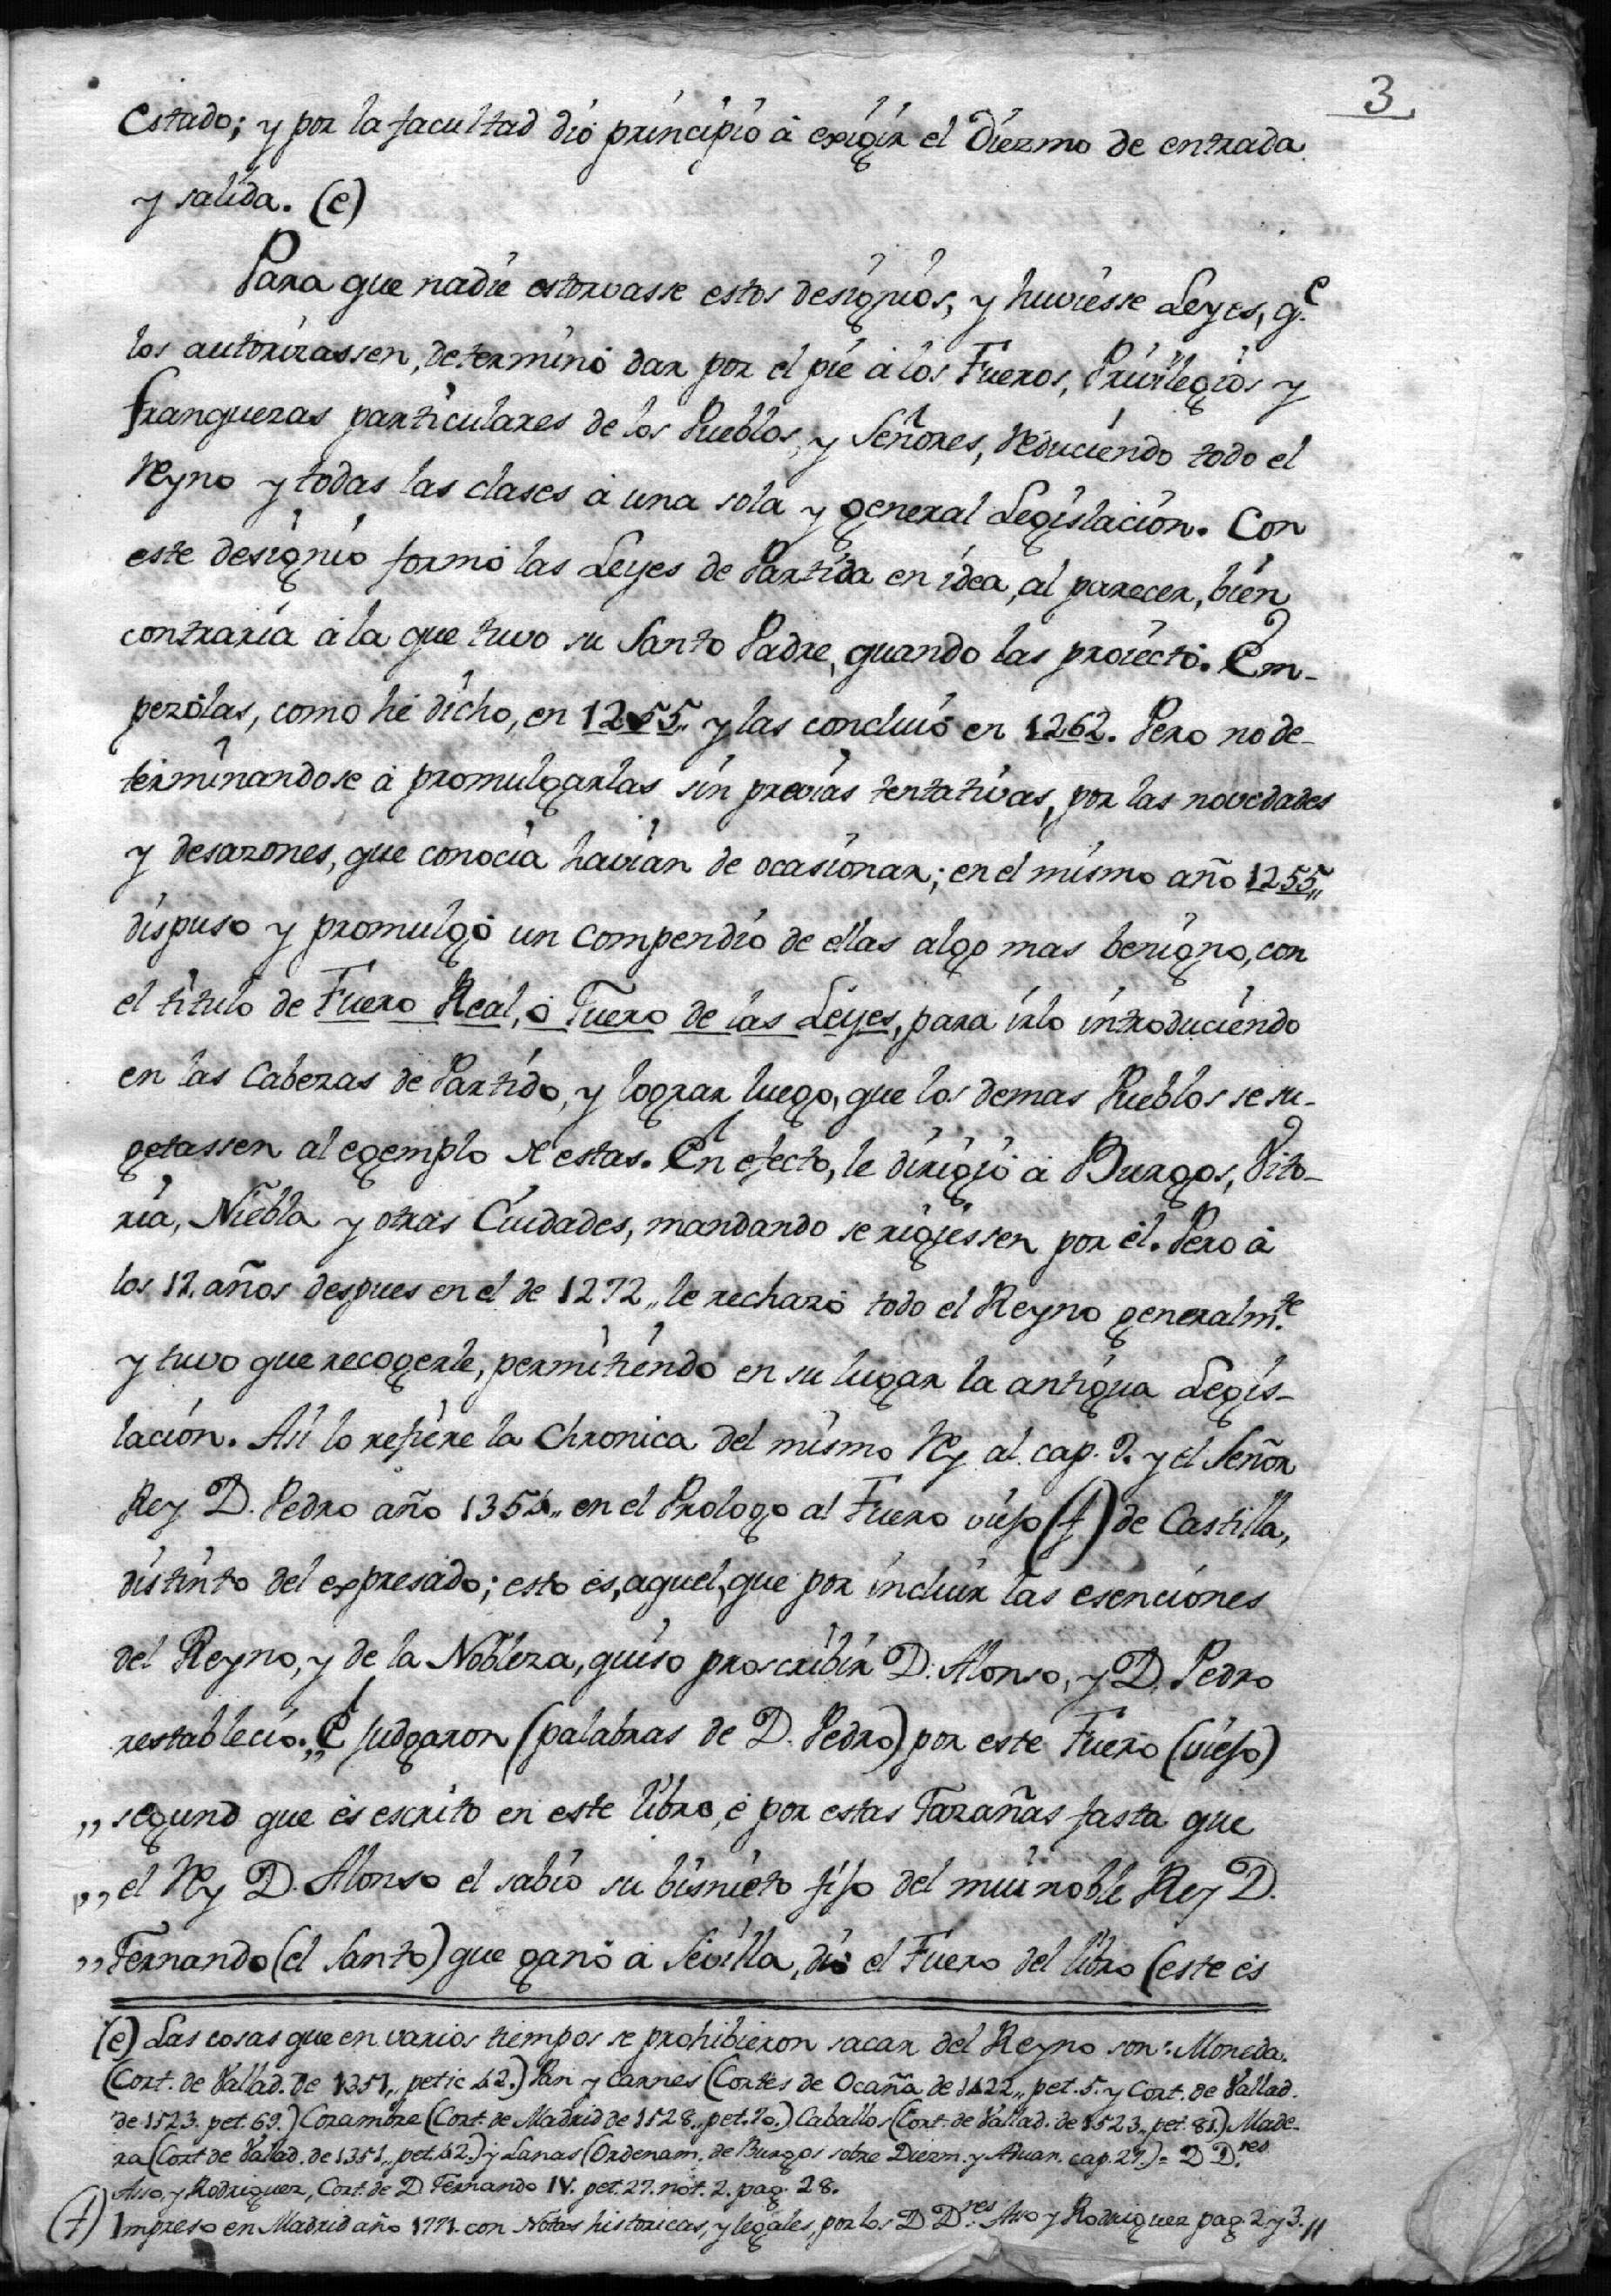 3
estado; y por la facultad dió principio á exigir el Diezmo de entrada
y salida. (e)
Para que nadie estorvasse estos designios, y huviesse Leyes, q.e
los autorizassen, determinó dar por el pie á los Fueros, Privilegios y
franquezas particulares de los Pueblos, y Señores, reduciendo todo el
Reyno y todas las clases á una sola y general Legislacion. Con
este designio formó las Leyes de Partida en idea, al parecer, bien
contraria á la que tuvo su Santo Padre, quando las proiectó. Em-
pezólas, como hé dicho, en 1255. y las concluió en 1262. Pero no de-
terminandose á promulgarlas sin previas tentativas, por las novedades
y desazones, que conocia havian de ocasionar; en el mismo año 1255,,
dispuso y promulgó un compendio de ellas algo mas benigno, con
el titulo de Fuero Real, ó Fuero de las Leyes, para irlo introduciendo
en las Cabezas de Partido, y lograr luego, que los demas Pueblos se su-
getassen al egemplo de estas. En efecto, le dirigió á Burgos, Vito-
ria, Niebla y otras Ciudades, mandando se rigiessen por él. Pero á
los 17. años despues en el de 1272,, le rechazó todo el Reyno generalm.te
y tuvo que recogerle, permitiendo en su lugar la antigua Legis-
lacion. Asi lo refiere la Chronica del mismo Rey al cap. 9. y el Señor
Rey D. Pedro año 1356,, en el Prologo al Fuero viejo (f) de Castilla,
distinto del expresado; esto és, aquel, que por incluir las esenciones
del Reyno, y de la Nobleza, quiso proscribir D. Alonso, y D. Pedro
restableció. ,,E judgaron (palabras de D. Pedro) por este Fuero (viejo)
,, segund que és escrito en este libro, é por estas Fazañas fasta que
,, el Rey D. Alonso el sabio su bisnieto fijo del mui noble Rey D.
,, Fernando (el Santo) que ganó á Sevilla, dió el Fuero del libro (este és
(e) Las cosas que en varios tiempos se prohibieron sacar del Reyno son: Moneda.
(Cort. de Vallad. de 1351,, petic. 42.) Pan y Carnes (Cortes de Ocaña de 1422,, pet. 5. y Cort. de Vallad.
de 1523. pet. 69.) Corambre (Cort. de Madrid de 1528,, pet. 70.) Caballos (Cort. de Vallad. de 1523,, pet. 81.) Made-
ra (Cort de Vallad. de 1351,, pet. 42.) y Lanas (Ordenam. de Burgos sobre Diezm. y Aduan. cap. 27.) = D D.res
Asso, y Rodriguez, Cort. de D. Fernando IV. pet. 27. not. 2. pag. 28.
(f) Impreso en Madrid año 1771. con Notas historicas, y legales, por los D D.res Asso y Rodriguez pag. 2. y 3.,,